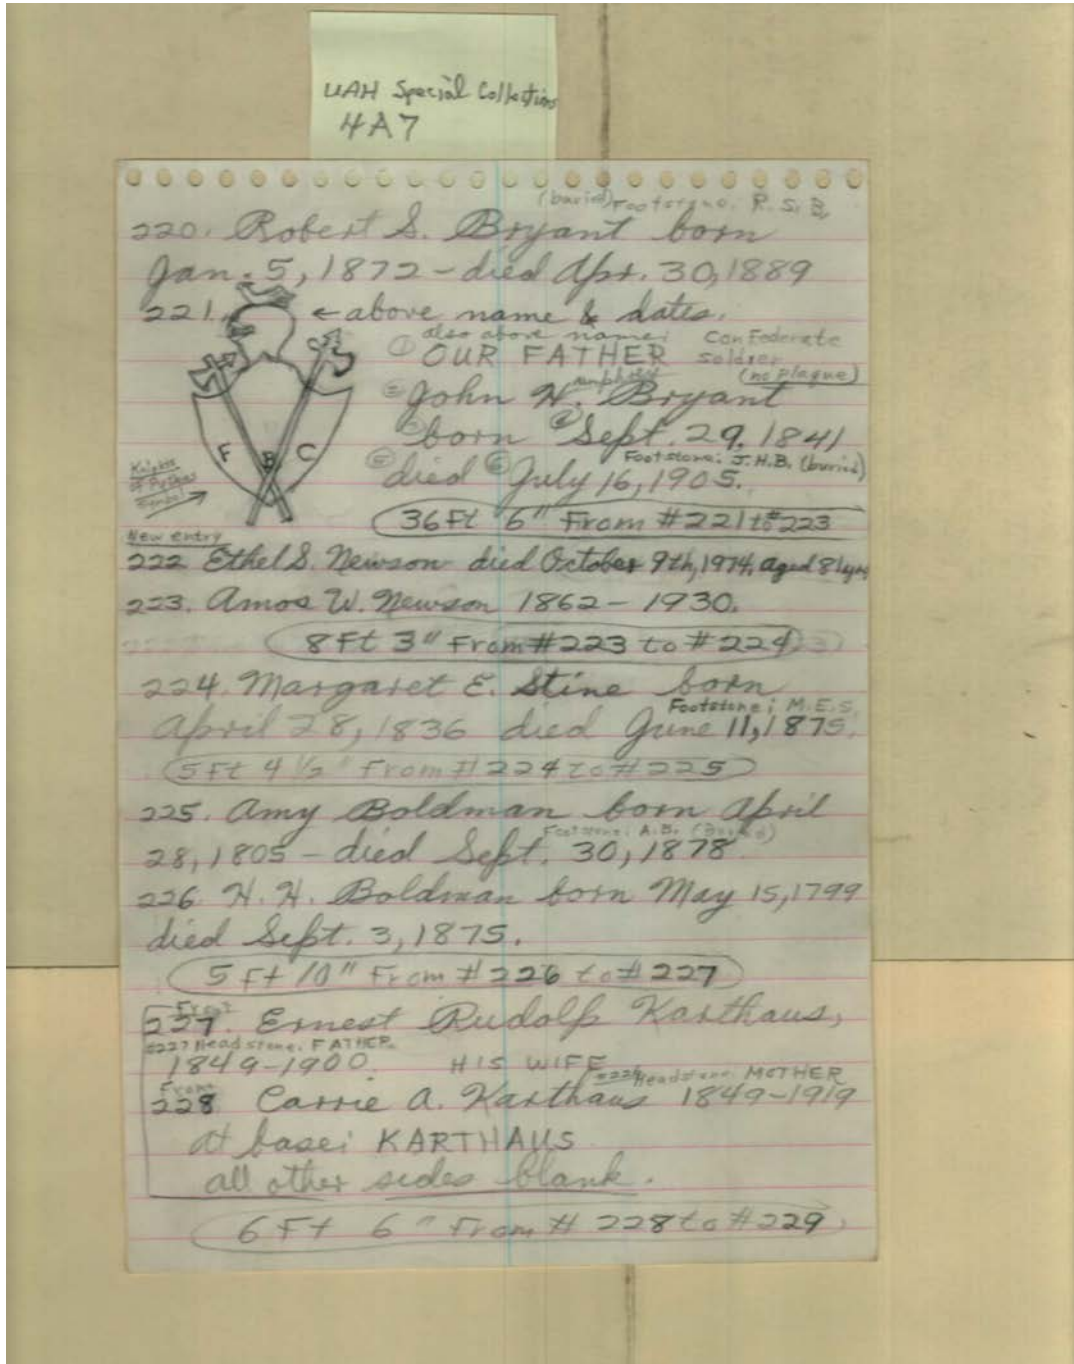 UAH Special Collections
4A7
(buried) Footstone: R.S.B.
220. Robert S. Bryant born
Jan. 5, 1872 - died Apr. 30, 1889
221. ← above name & dates.
also above name: Confederate
① OUR FATHER soldier
(no plaque)
② John H. Bryant
③ born ④ Sept. 29, 1841
Footstone: J.H.B. (buried)
⑤ died ⑥ July 16, 1905.
F B C
Knights
of Pythias
Symbol
36Ft 6" From #221 to #223
New entry
222 Ethel S. Newson died October 9th, 1974, aged 81 yrs
223. Amos W. Newson 1862 - 1930.
8Ft 3" From #223 to #224
224. Margaret E. Stine born
Footstone; M.E.S.
April 28, 1836 died June 11, 1875.
5Ft 4 1/2" From #224 to #225
225. Amy Boldman born April
Footstone: A.B. (Buried)
28, 1805 - died Sept. 30, 1878
226. H. H. Boldman born May 15, 1799
died Sept. 3, 1875.
5 Ft 10" From #226 to #227
Front
227. Ernest Rudolf Karthaus,
#227 Headstone: FATHER
1849-1900. HIS WIFE
#228 Headstone: MOTHER
Front
228 Carrie A. Karthaus 1849-1919
at base: KARTHAUS
all other sides blank.
6 Ft 6" From #228 to #229